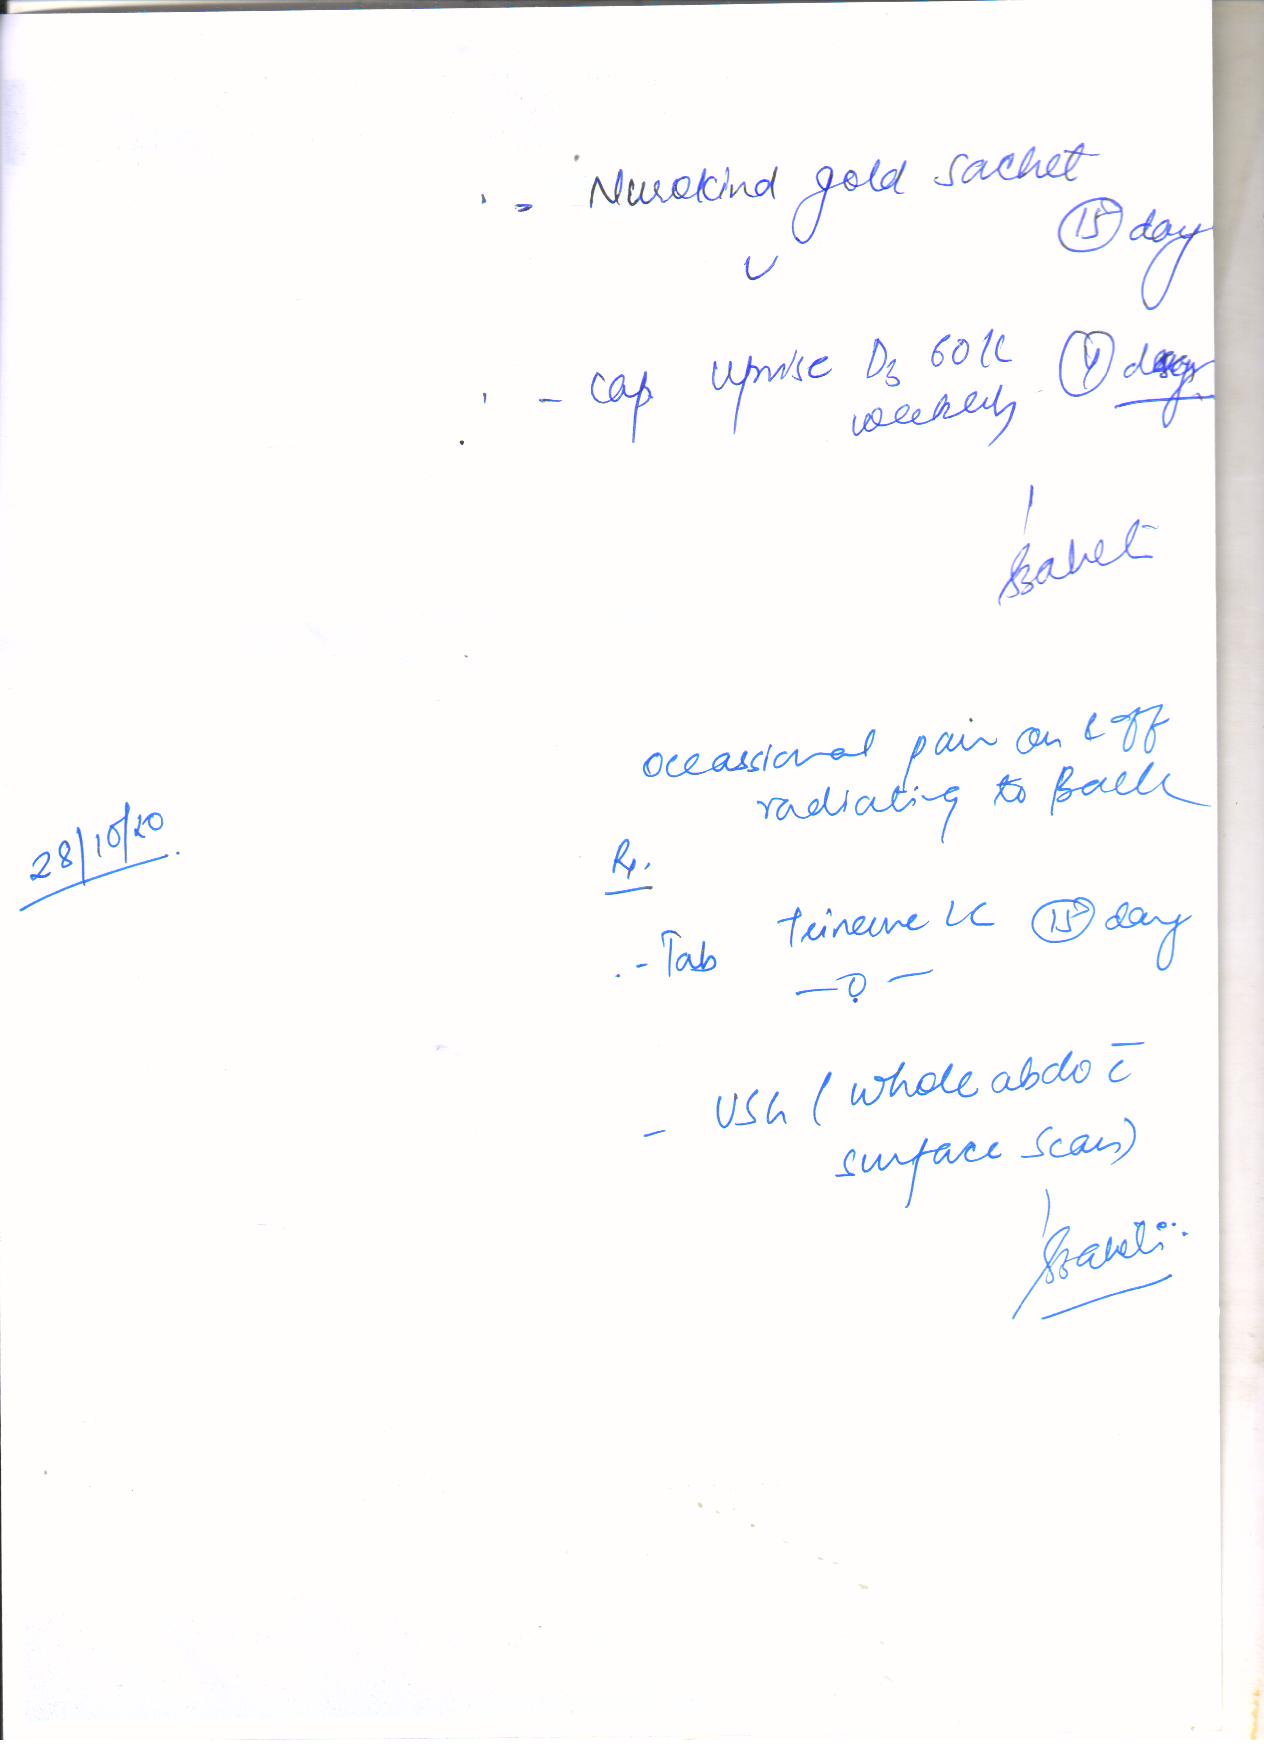 - Nurokind gold sachet
15 day
- Cap Uprise D3 60K 4
weekly
occassional pain on & off
radiating to Back
28/10/20
Rx.
- Tab LC 15 day
- USG (whole abdo c̄
surface scan)